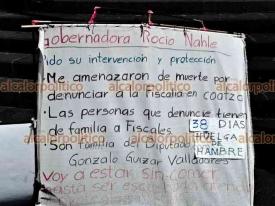 Gobernadora Rocío Nahle
Pido su intervención y protección
• Me amenazaron de muerte por
denunciar a la Fiscalía en coatza
• Las personas que denuncie tienen
de familia a Fiscales
38 DIAS
HUELGA
DE
HAMBRE
• Son familia del Diputado
Gonzalo Guizar Valladares
Voy a estar sin comer
hasta ser
alcalorpolitico